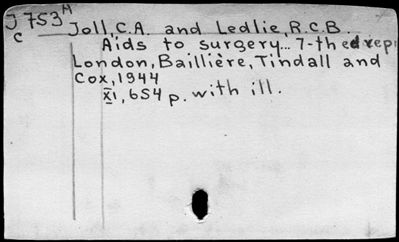 J 753 M Joll, C.A. and Ledlie, R.C.B.
C
Aids to surgery... 7-th ed repr
London, Baillière, Tindall and
Cox, 1944
XI, 654 p. with ill.